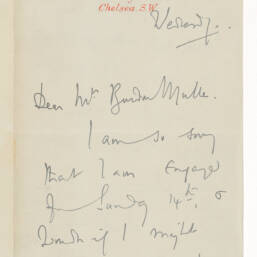 Chelsea. S.W.
Wednesday.
Dear Mrs Burdon Muller.
I am so sorry
that I am engaged
for Sunday 14th, &
wonder if I might